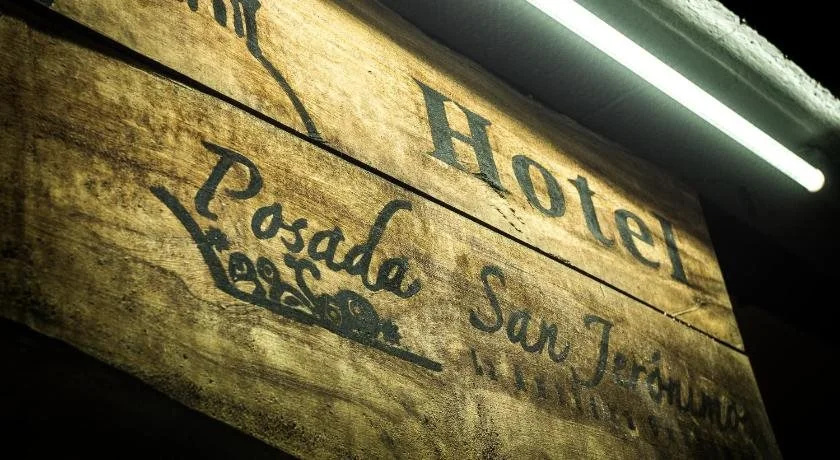 Hotel
Posada San Jerónimo